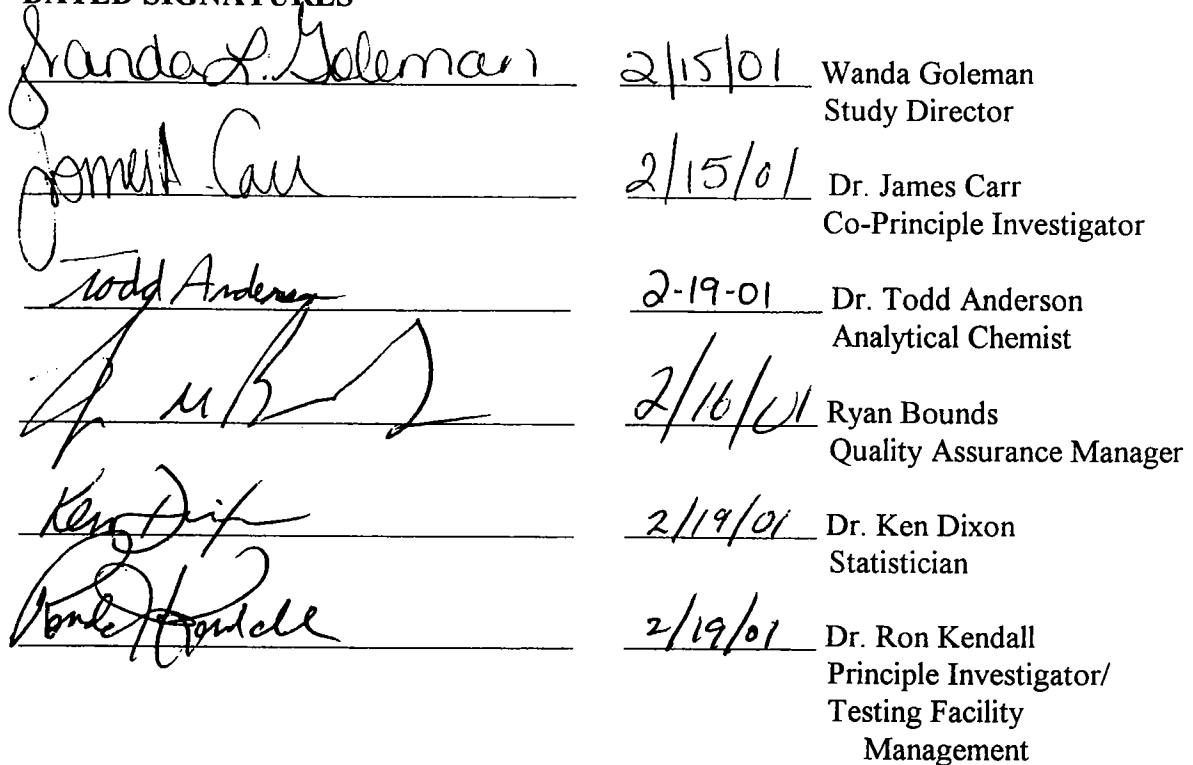 DATED SIGNATURES
Wanda L. Goleman 2/15/01 Wanda Goleman
Study Director
James A. Carr 2/15/01 Dr. James Carr
Co-Principle Investigator
Todd Anderson 2-19-01 Dr. Todd Anderson
Analytical Chemist
2/16/01 Ryan Bounds
Quality Assurance Manager
Ken Dixon 2/19/01 Dr. Ken Dixon
Statistician
Ronald J Kendall 2/19/01 Dr. Ron Kendall
Principle Investigator/
Testing Facility
Management